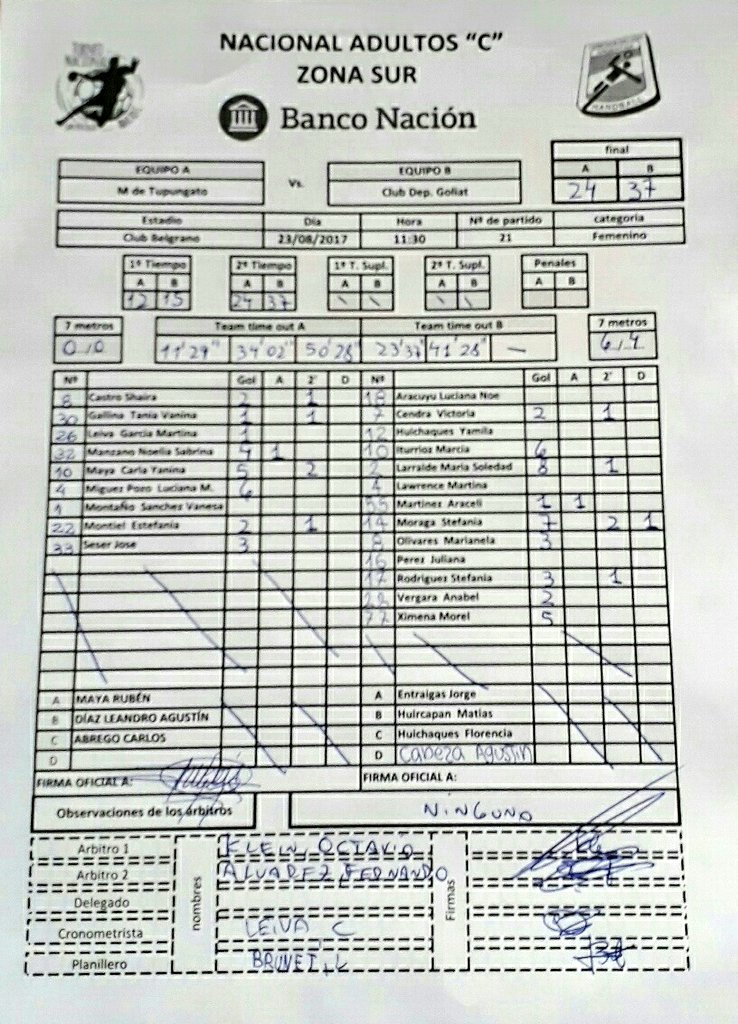 NACIONAL ADULTOS “C”
ZONA SUR
Banco Nación
HANDBALL
final
A B
24 37
EQUIPO A Vs. EQUIPO B
M de Tupungato Club Dep. Goliat
Estadio Día Hora Nº de partido categoria
Club Belgrano 23/08/2017 11:30 21 Femenino
1º Tiempo 2º Tiempo 1º T. Supl. 2º T. Supl. Penales
A B A B A B A B A B
12 15 24 37 \ \ \ \
7 metros Team time out A Team time out B 7 metros
0 / 0 11'29" 39'02" 50'28" 23'37 41'28" —
Nº Gol A 2' D Nº Gol A 2' D
8 Castro Shaira 2 1 18 Aracuyu Luciana Noe
30 Gallina Tania Vanina 1 1 7 Cendra Victoria 2 1
26 Leiva Garcia Martina 1 12 Huichaques Yamila
32 Manzano Noelia Sabrina 4 1 10 Iturrioz Marcia 6
10 Maya Carla Yanina 5 2 2 Larralde Maria Soledad 8 1
4 Miguez Pozo Luciana M. 6 Lawrence Martina
1 Montaño Sanchez Vanesa 55 Martinez Araceli 1 1
22 Montiel Estefania 2 1 14 Moraga Stefania 7 2 1
33 Seser Jose 3 Olivares Marianela 3
16 Perez Juliana
17 Rodriguez Stefania 3 1
Vergara Anabel 2
77 Ximena Morel 5
A MAYA RUBÉN A Entraigas Jorge
B DÍAZ LEANDRO AGUSTÍN B Huircapan Matias
C ABREGO CARLOS C Huichaques Florencia
D D Cabeza Agustin
FIRMA OFICIAL A: FIRMA OFICIAL A:
Observaciones de los árbitros NINGUNO
Arbitro 1 KLEIN, OCTAVIO
Arbitro 2 ALVAREZ, FERNANDO
Delegado
nombres
Firmas
Cronometrista LEIVA C
Planillero BRUNET, L